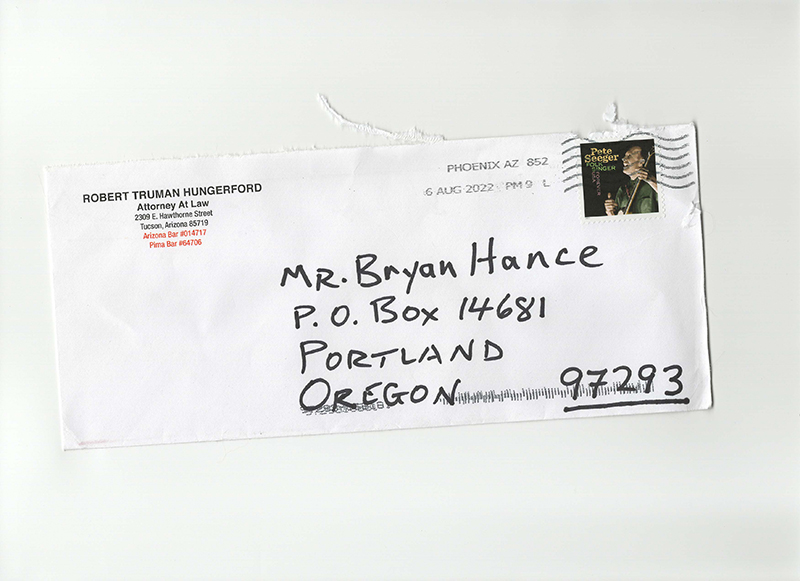 ROBERT TRUMAN HUNGERFORD
Attorney At Law
2309 E. Hawthorne Street
Tucson, Arizona 85719
Arizona Bar #014717
Pima Bar #64706
PHOENIX AZ 852
6 AUG 2022 PM 9 L
Pete
Seeger
FOLK
SINGER
FOREVER
USA
MR. Bryan Hance
P. O. Box 14681
PORTLAND
OREGON 97293